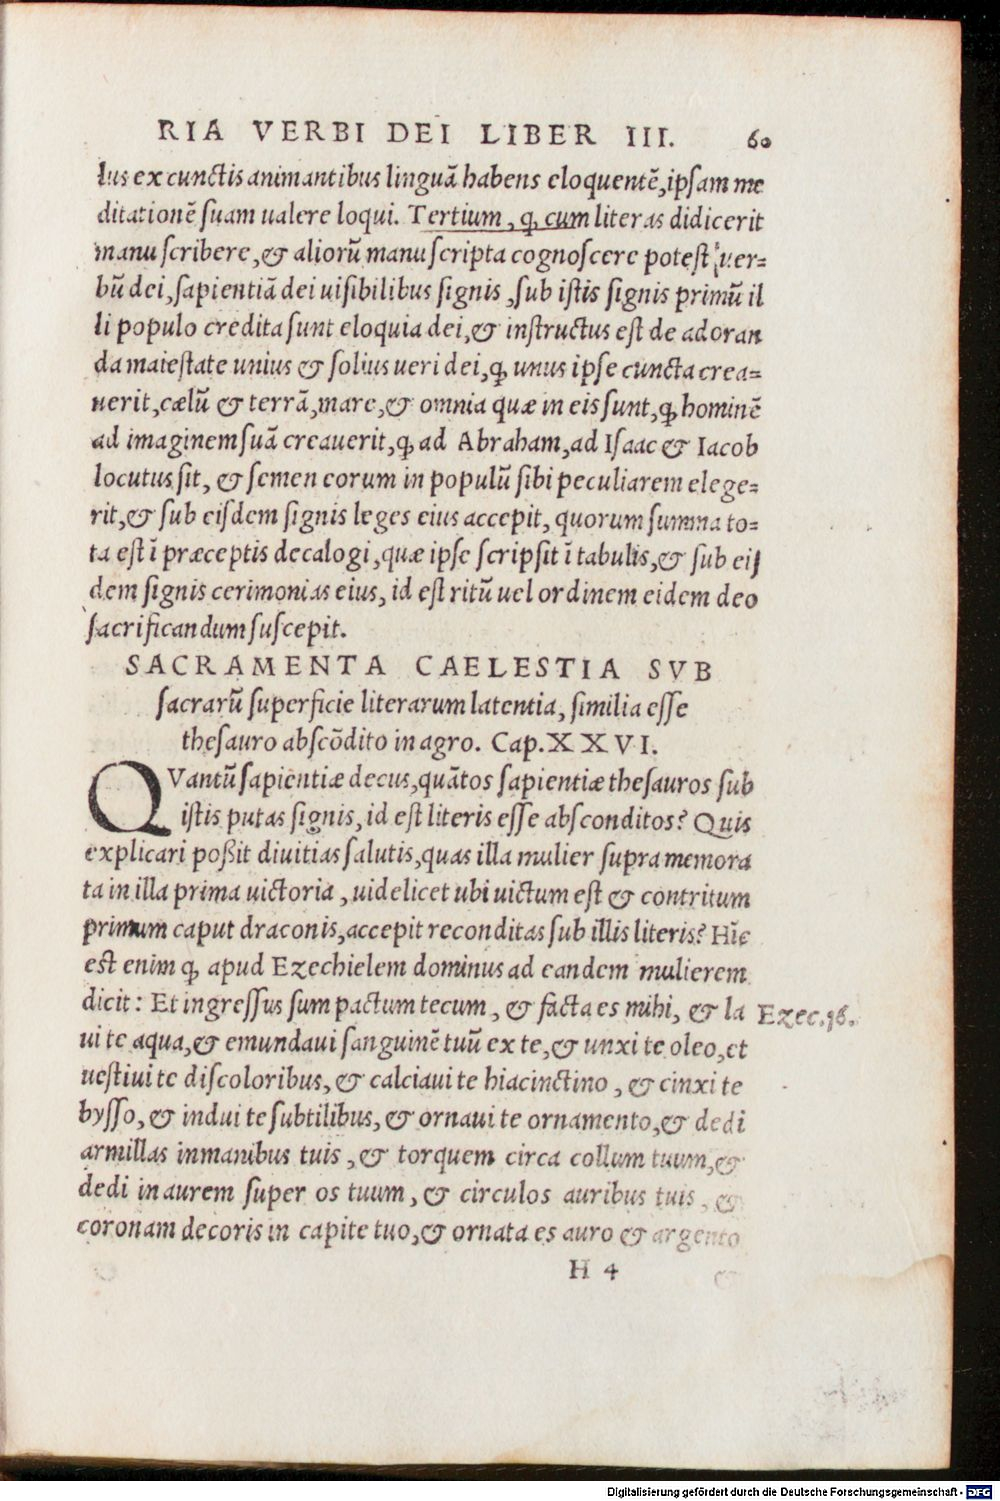 RIA VERBI DEI LIBER III. 60
lus ex cunctis animantibus linguã habens eloquentẽ, ipsam me
ditationẽ suam ualere loqui. Tertium, ꝙ cum literas didicerit
manu scribere, & aliorũ manu scripta cognoscere potest uer=
bũ dei, sapientiã dei uisibilibus signis, sub istis signis primũ il
li populo credita sunt eloquia dei, & instructus est de adoran
da maiestate unius & solius ueri dei, ꝙ unus ipse cuncta crea=
uerit, cælũ & terrã, mare, & omnia quæ in eis sunt, ꝙ hominẽ
ad imaginem suã creauerit, ꝙ ad Abraham, ad Isaac & Iacob
locutus sit, & semen eorum in populũ sibi peculiarem elege=
rit, & sub eisdem signis leges eius accepit, quorum summa to=
ta est ĩ præceptis decalogi, quæ ipse scripsit ĩ tabulis, & sub eis
dem signis cerimonias eius, id est ritũ uel ordinem eidem deo
sacrificandum suscepit.
SACRAMENTA CAELESTIA SVB
sacrarũ superficie literarum latentia, similia esse
thesauro abscõdito in agro. Cap. XXVI.
QVantũ sapientiæ decus, quãtos sapientiæ thesauros sub
istis putas signis, id est literis esse absconditos? Quis
explicari poßit diuitias salutis, quas illa mulier supra memora
ta in illa prima uictoria, uidelicet ubi uictum est & contritum
primum caput draconis, accepit reconditas sub illis literis? Hĩc
est enim ꝙ apud Ezechielem dominus ad eandem mulierem
dicit: Et ingressus sum pactum tecum, & facta es mihi, & la
Ezec. 16.
ui te aqua, & emundaui sanguinẽ tuũ ex te, & unxi te oleo, et
uestiui te discoloribus, & calciaui te hiacinctino, & cinxi te
bysso, & indui te subtilibus, & ornaui te ornamento, & dedi
armillas in manibus tuis, & torquem circa collum tuum, &
dedi inaurem super os tuum, & circulos auribus tuis, &
coronam decoris in capite tuo, & ornata es auro & argento
H 4 &
Digitalisierung gefördert durch die Deutsche Forschungsgemeinschaft - DFG